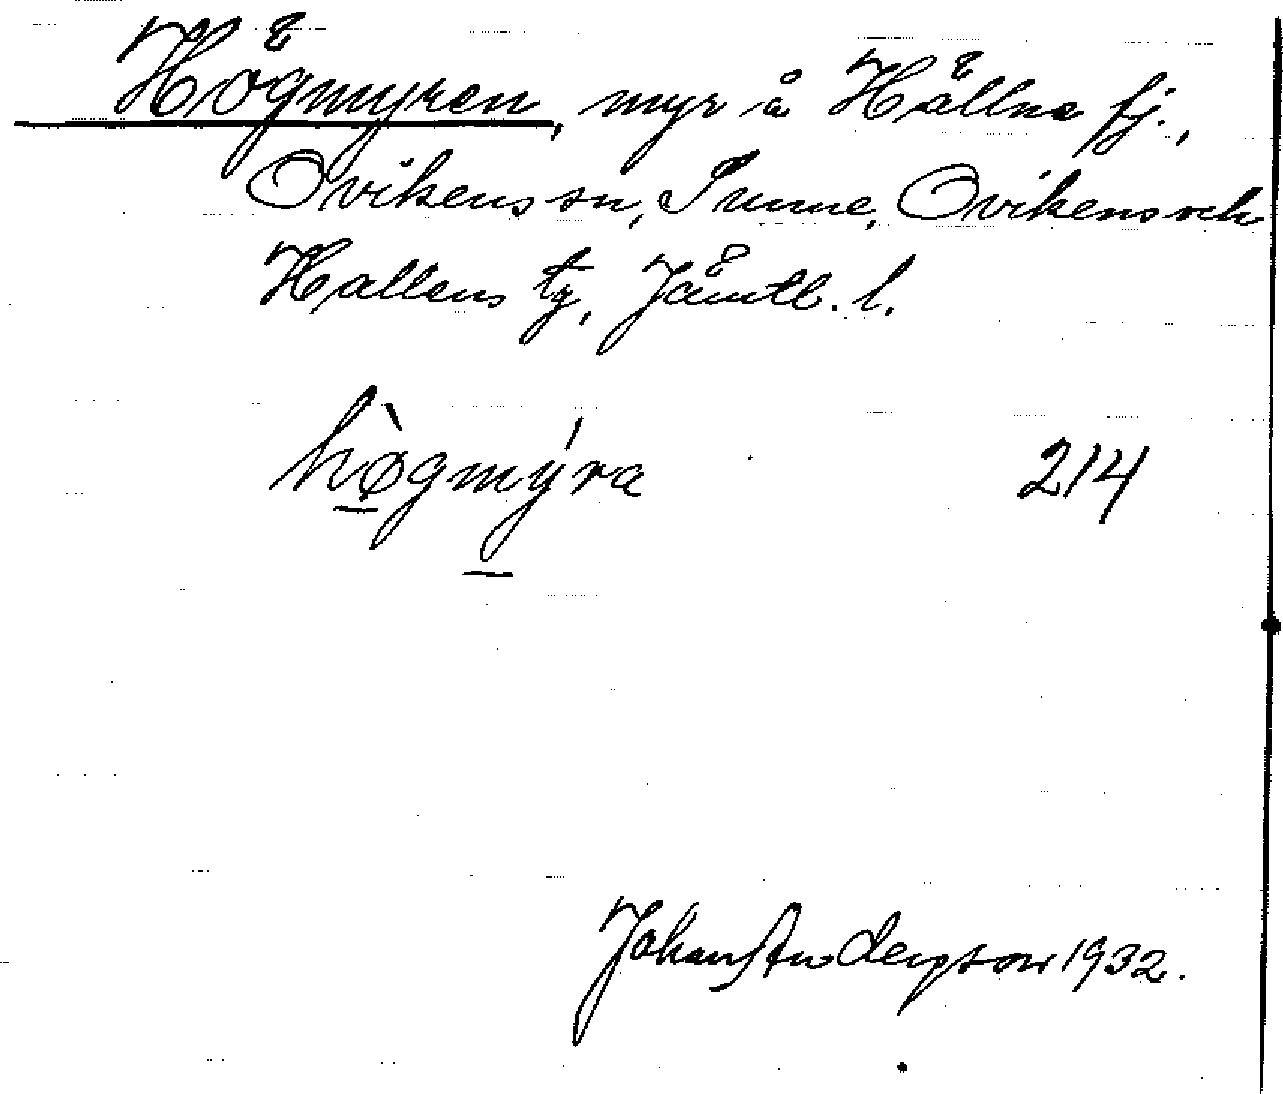 Högmyren, myr å Hällne fj.,
Ovikens sn, Sunne, Ovikens och
Hallens tg, Jämtl. l.
hø̀gmýra 214
Johan Anderson 1932.